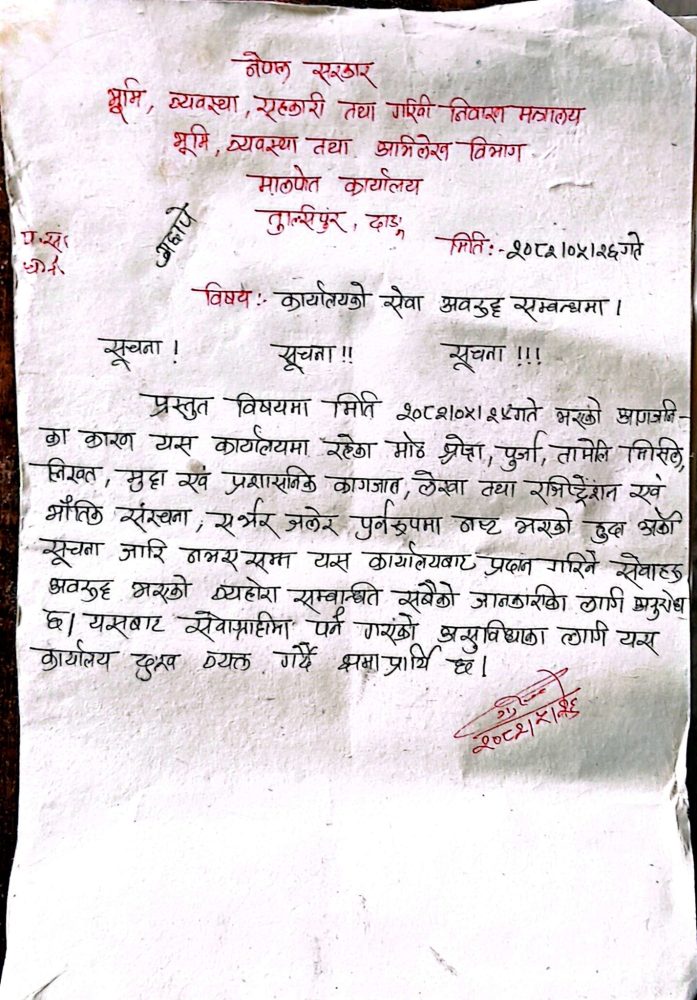 नेपाल सरकार
भूमि, व्यवस्था, सहकारी तथा गरिवी निवारण मन्त्रालय
भूमि, व्यवस्था तथा अभिलेख विभाग
मालपोत कार्यालय
तुल्सीपुर, दाङ्ग
प.सं.
च.नं.
मिति:- २०८२।०५।२६गते
विषय:- कार्यालयको सेवा अवरुद्द सम्बन्धमा।
सूचना! सूचना!! सूचना!!!
प्रस्तुत विषयमा मिति २०८२।०५।२४गते भएको आगजनि-
का कारण यस कार्यालयमा रहेका मोठ श्रेष्ता, पुर्जा, तामेलि मिसिल,
लिखत, मुद्दा एवं प्रशासनिक कागजात, लेखा तथा रजिष्ट्रेशन एवं
भौतिक संरचना, सर्भर जलेर पुर्नरुपमा नष्ट भएको हुदा अर्को
सूचना जारि नभए सम्म यस कार्यालयबाट प्रदान गरिने सेवाहरु
अवरुद्द भएको व्यहोरा सम्बान्धित सबैको जानकारीका लागि अनुरोध
छ। यसबाट सेवाग्राहीमा पर्न गएको असुविधाका लागि यस
कार्यालय दुःख व्यक्त गर्दै क्षमाप्रार्थि छ।
२०८२।५।२६